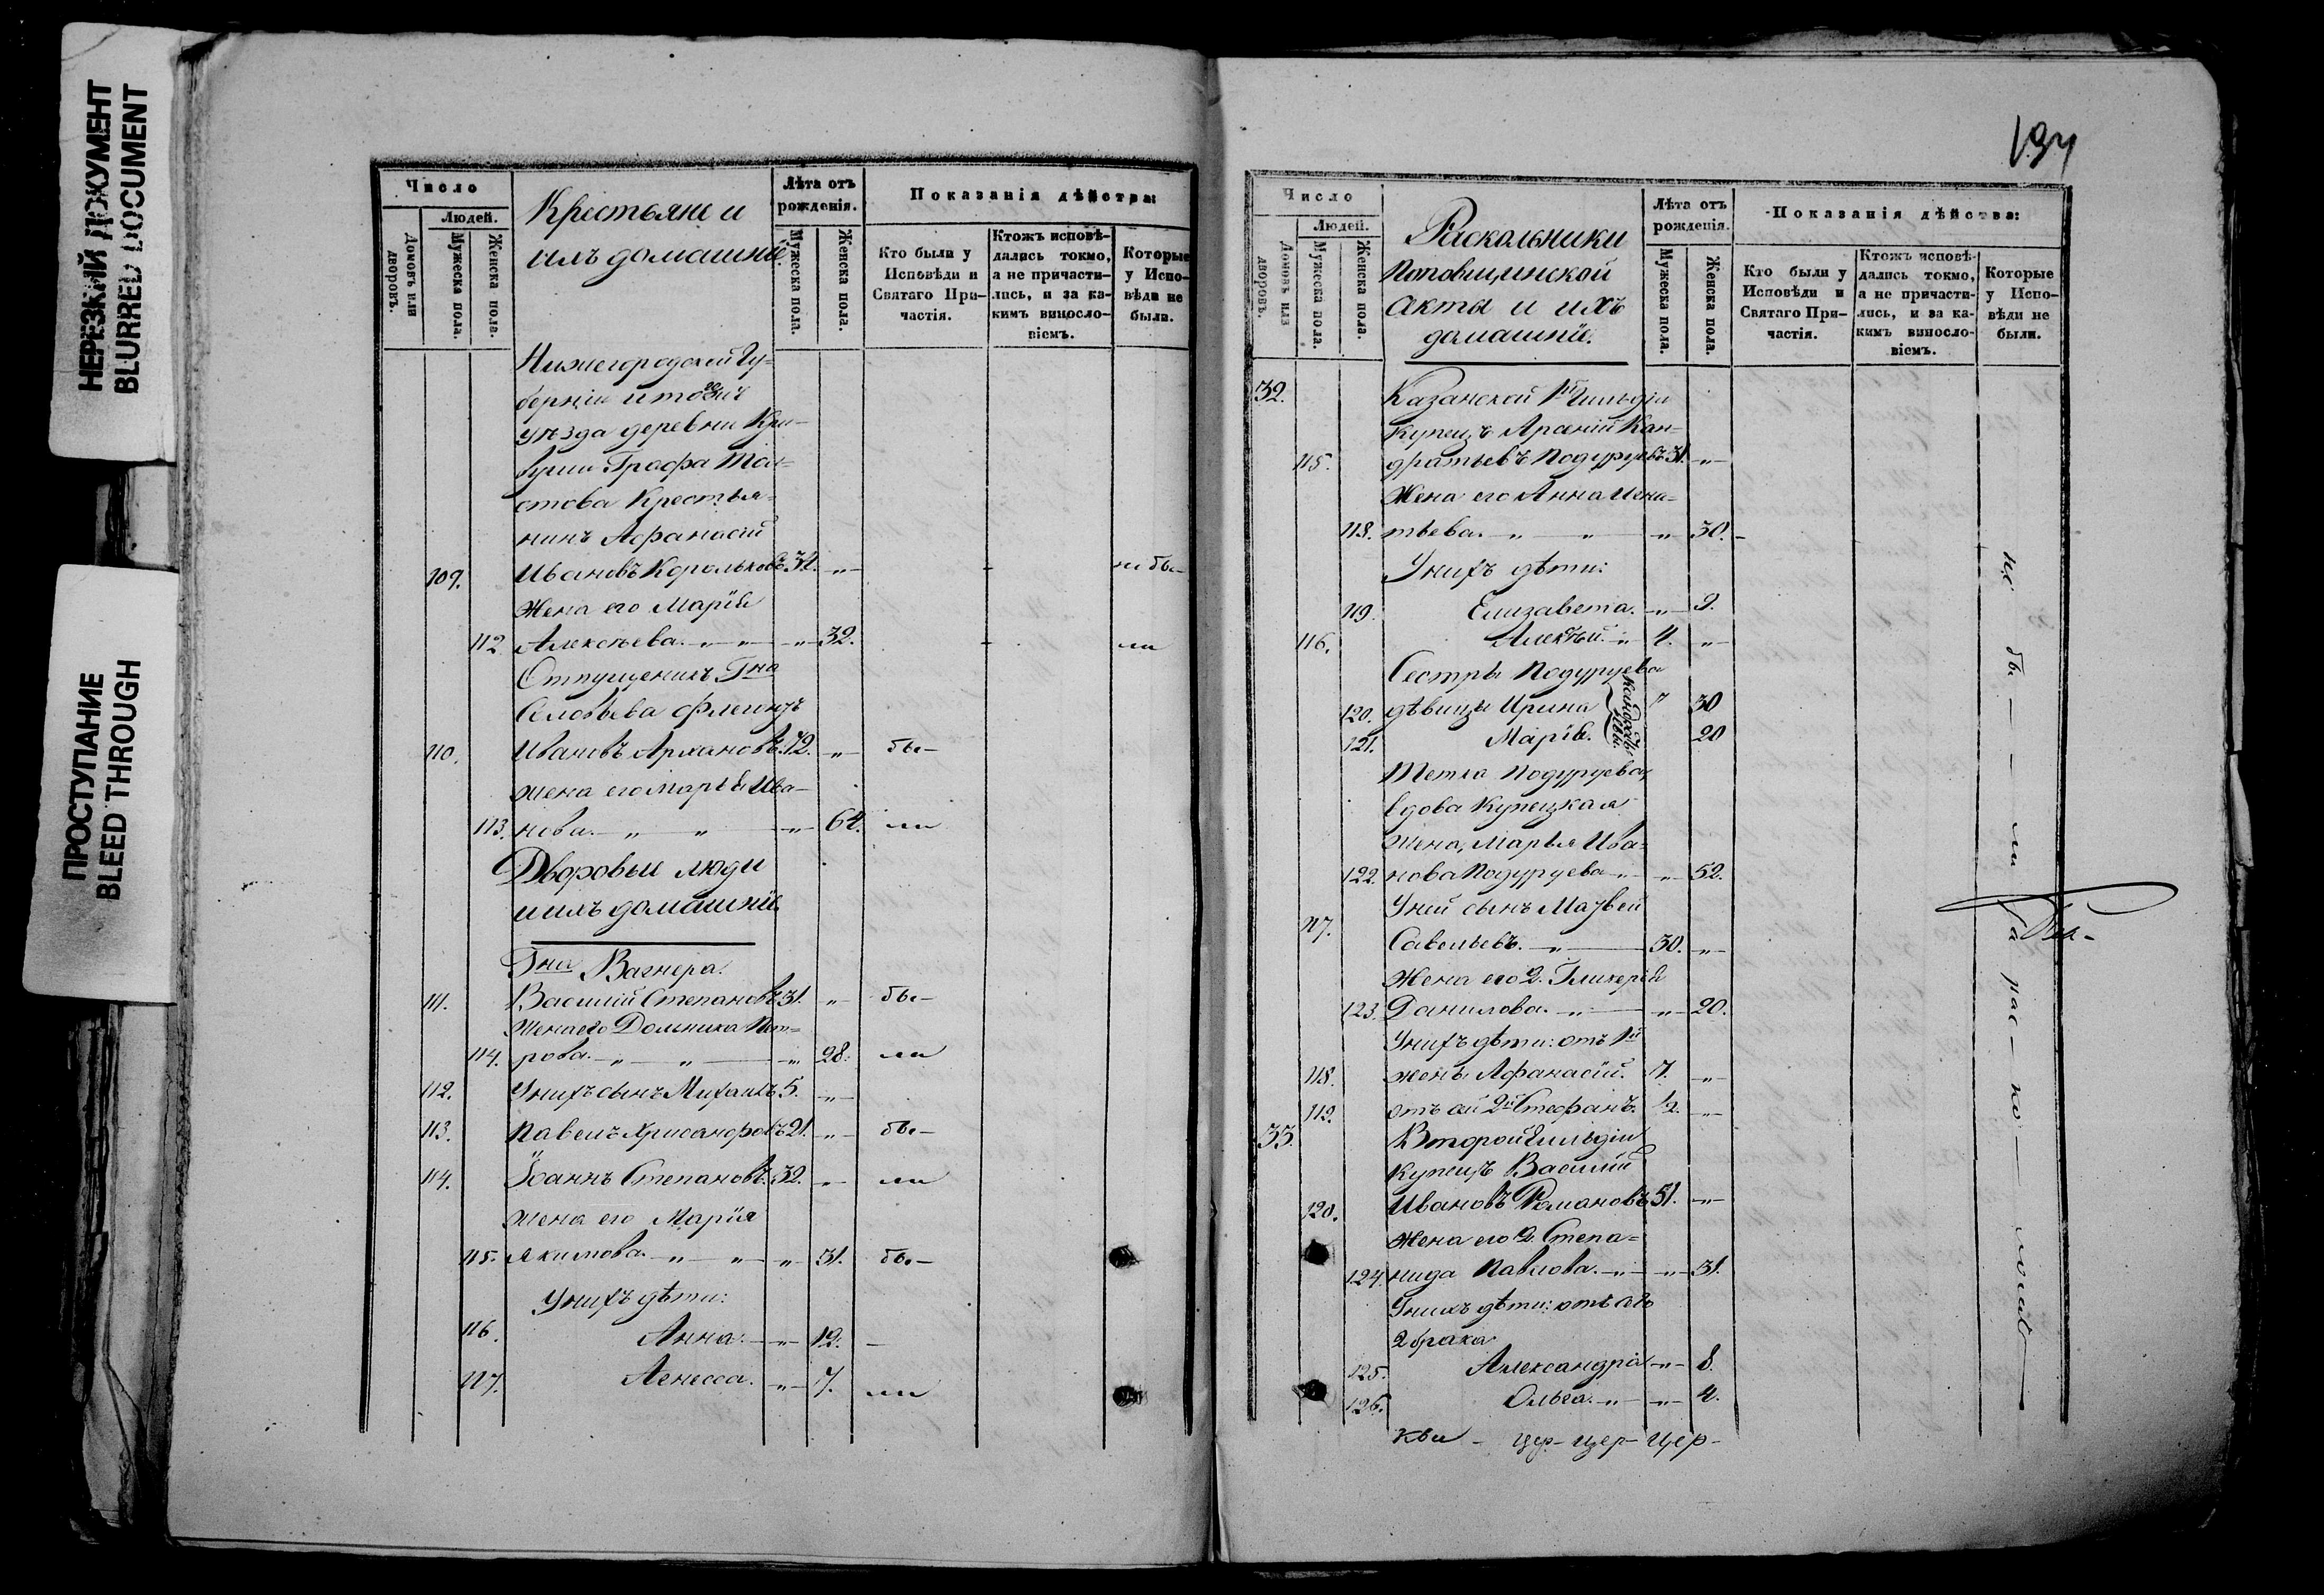 НЕРЕЗКИЙ ДОКУМЕНТ
BLURRED DOCUMENT
ПРОСТУПАНИЕ
BLEED THROUGH
Число
Людей.
Домовъ или дворовъ.
Мужеска пола.
Женска пола.
Крестьяне и
ихъ домашніе.
Лѣта отъ рожденія.
Мужеска пола.
Женска пола.
Показанія дѣйства:
Кто были у Исповѣди и Святаго Причастія.
Ктожъ исповѣдались токмо, а не причастились, и за какимъ винословіемъ.
Которые у Исповѣди не были.
Нижегородской Гу-
берніи
уѣзда деревни
Графа Тол-
стова Крестья-
нинъ Афанасій
109. Ивановъ Корольковъ 34. „ не бы-
Жена его Марія
112 Алексѣева. „ „ „ 32. ли
Отпущеникъ Гна
Соловьева
110. Ивановъ 72. „ бы-
жена его Марья Ива-
113. нова. „ „ „ 64. ли
Дворовые люди
и ихъ домашніе.
Гна Вагнера.
111. Василій Степановъ 31. „ бы-
Жена его Домника Пет-
114. рова. „ „ „ 28. ли
112. У нихъ сынъ Михаилъ 5. „
113. Павелъ Хрисанфовъ 21. „ бы-
114. Іоаннъ Степановъ. 32. „ ли
жена его Марія
115. Якимова. „ „ „ 31. бы-
У нихъ дѣти:
116. Анна. „ 12. -
117. Агнесса. „ 7. ли
134
Число
Людей.
Домовъ или дворовъ.
Мужеска пола.
Женска пола.
Раскольники
Поповщинской
секты и ихъ
домашніе.
Лѣта отъ рожденія.
Мужеска пола.
Женска пола.
Показанія дѣйства:
Кто были у Исповѣди и Святаго Причастія.
Ктожъ исповѣдались токмо, а не причастились, и за какимъ винословіемъ.
Которые у Исповѣди не были.
32. Казанской 1й Гильдіи
Купецъ Арсеній Кон-
115. дратьевъ Подуруевъ 31. „
Жена его Анна Игна-
118. тьева. „ „ „ 30.
У нихъ дѣти:
119. Елизавета. „ 9.
116. Алексѣй. „ 4. „
Сестры Подуруева
120. дѣвицы Ирина „ 30
121. Марія. 20
Тетка Подуруева,
вдова Купецкая
жена, Марья Ива-
122. нова Подуруева „ „ 52.
117. У ней сынъ Матвей
Савельевъ. „ 30. „
Жена его 2. Гликерія
123. Данилова. „ „ 20.
У нихъ дѣти: отъ 1й
118. жены Афанасій. 7. „
119. отъ сей 2й Стефанъ. 1/2. „
33. Второй Гильдіи
Купецъ Василій
120. Ивановъ Романовъ 51. „
Жена его 2. Степа-
124. нида Павлова. „ „ 31.
У нихъ дѣти: отъ сего
2 брака
125. Александра „ 8.
126. Ольга. „ „ 4.
не бы — ли
за рас — ко — лом
кви - цер- цер- цер-